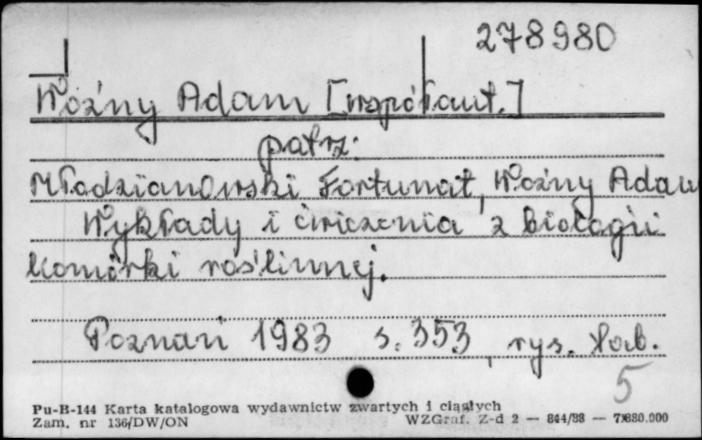 278980
Woźny Adam [współaut.]
patrz:
Młodzianowski Fortunat, Woźny Adam
Wykłady i ćwiczenia z biologii
komórki roślinnej.
Poznań 1983 s. 353, rys. tab.
5
Pu-B-144 Karta katalogowa wydawnictw zwartych i ciągłych
Zam. nr 136/DW/ON WZGraf. Z-d 2 — 844/83 —